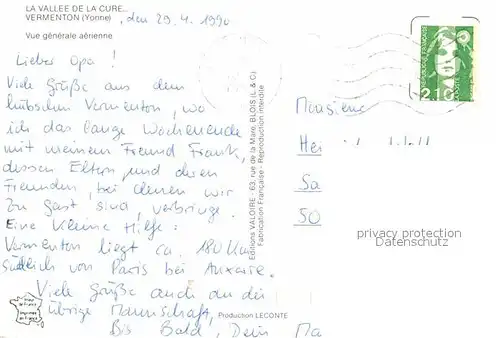 LA VALLEE DE LA CURE...
VERMENTON (Yonne)
, den 29.4.1990
Vue générale aérienne
Lieber Opa!
Viele Grüße aus dem
hübschen Vermenton, wo
ich das lange Wochenende
mit meinem Freund Frank,
dessen Eltern und deren
Freunden, bei denen wir
zu Gast sind, verbringe.
Eine kleine Hilfe:
Vermenton liegt ca. 180 km
südlich von Paris bei Auxerre.
Viele Grüße auch an die
übrige Mannschaft,
Bis Bald, Dein Ma
Imprimé
en France
Production LECONTE
Editions VALOIRE - 63, rue de la Maire, BLOIS (L. & C.)
Fabrication Française - Reproduction interdite
2,10
Monsieur
Hei
Sa
50
privacy protection
Datenschutz